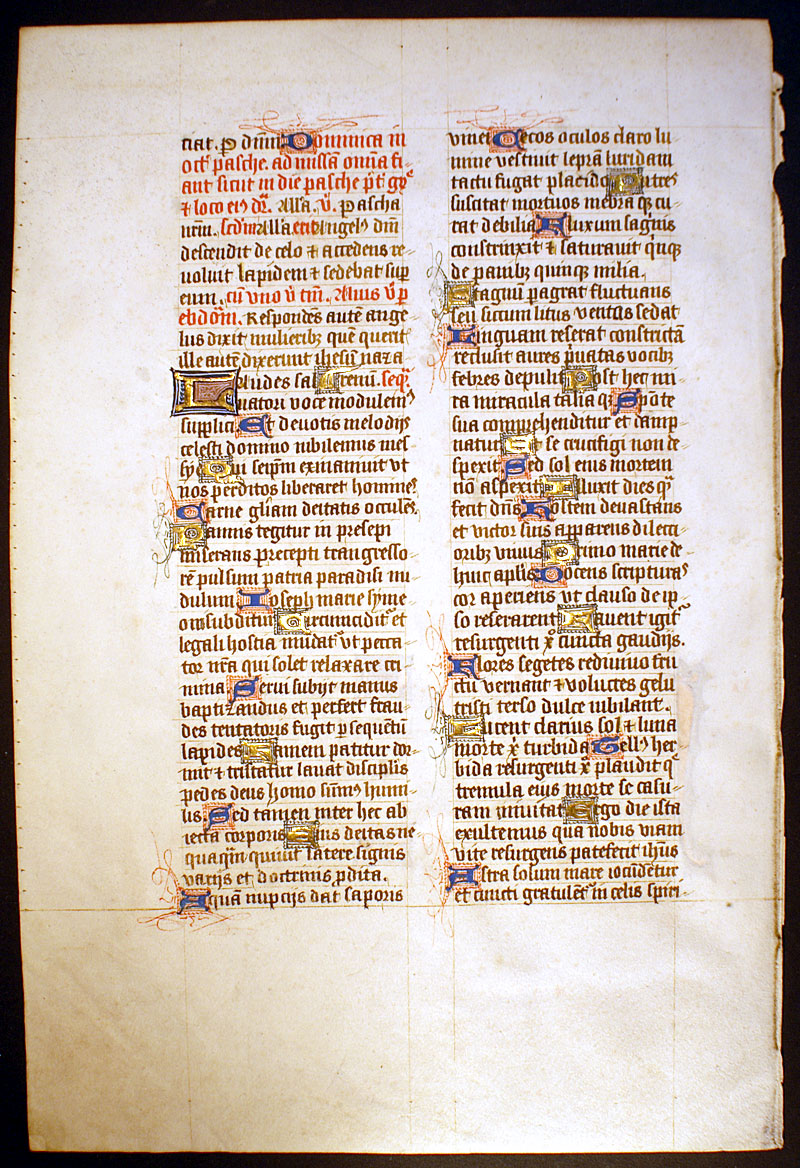 ciat. P dnm Dominica in
oct' pasche. ad missam omnia fi-
ant sicut in die pasche pt gr
& loco eius dr. Alla. V. Pascha
nrm. scdm Alla. Angelus dni
descendit de celo & accedens re-
voluit lapidem & sedebat sup
eum. cu uno v tm. Alius v p
ebdom. Respondens aute ange-
lus dixit mulieribz que querit
ille aute dixerunt ihesum naza
renum. seq.
Laudes sal-
uatori voce modulem
supplici. Et devotis melodiis
celesti domino iubilemus mes-
sye Qui seipm exinanivit ut
nos perditos liberaret homines
Carne gliam deitatis occules
Pannis tegitur in presepi
miserans precepti transgresso-
re pulsum patria paradisi nu-
dulum Ioseph marie syme-
oni subditur Circumciditur et
legali hostia mudat ut pecca-
tor nra qui solet relaxare cri-
mina. Servi subiit manus
baptizandus et perfert frau-
des tentatoris fugit persequetu
lapides Famem patitur dor-
mit & tristatur lavat discipulis
pedes deus homo summus humi-
lis. Sed tamen inter hec ab-
iecta corporis Eius deitas ne-
quaquam quivit latere signis
variis et doctrinis prodita.
Aquam nupcijs dat saporis
vinei Cecos oculos claro lu-
mine vestivit lepram luridam
tactu fugat placido Putres
suscitat mortuos mebraq cu-
rat debilia Fluxum sagnis
constrinxit & saturavit quinqe
de panibz quinque milia.
Stagnum pagrat fluctuans
seu siccum litus ventos sedat
Linguam reserat constrictam
reclusit aures privatas vocibz
febres depulit Post hec mi-
ra miracula talia Sponte
sua comprehenditur et damp-
natur Et se crucifigi non de-
spexit Sed sol eius mortem
non aspexit Illuxit dies qua
fecit dns Mortem devastans
et victor suis apparens dilecti-
oribz vivus Primo marie de-
hinc aplis Docens scripturas
cor aperiens ut clausa de ip-
so reserarent Favent igitur
resurgenti xpo cuncta gaudijs.
Flores segetes redivivo fru-
ctu vernant & volucres gelu
tristi terso dulce iubilant.
Lucent clarius sol & luna
morte xpi turbida Tellus her-
bida resurgenti xpo plaudit q
tremula eius morte se casu-
ram minitat Ergo die ista
exultemus qua nobis viam
vite resurgens patefecit ihesus
Astra solum mare iocundetur
et cuncti gratulentur in celis spiri-